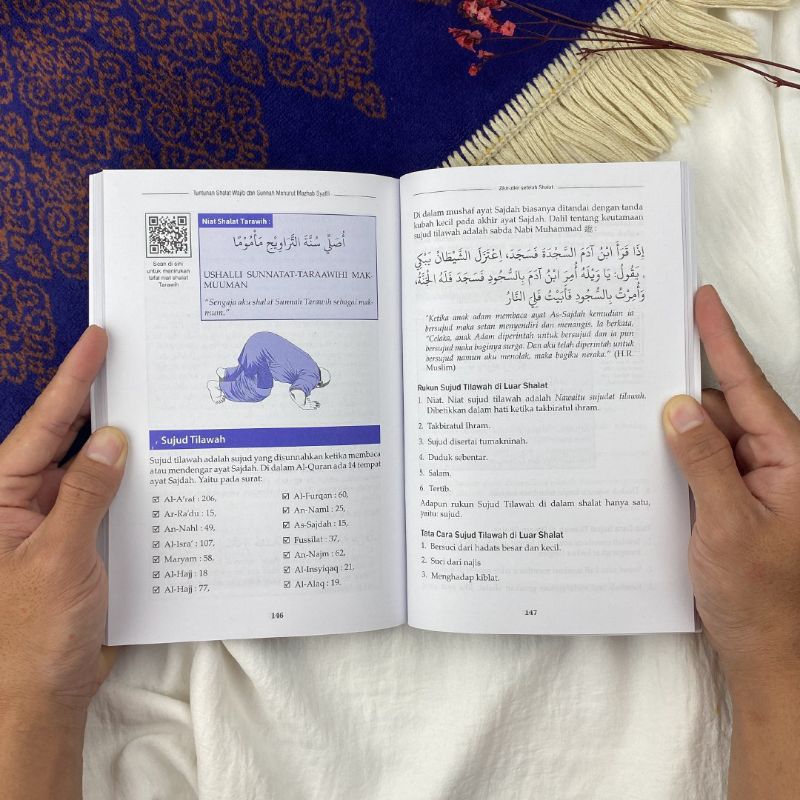 Tuntunan Shalat Wajib dan Sunnah Menurut Mazhab Syafi'i
Scan di sini
untuk menirukan
lafal niat shalat
Tarawih
Niat Shalat Tarawih :
أُصَلِّي سُنَّةَ التَّرَاوِيْحِ مَأْمُوْمًا
USHALLI SUNNATAT-TARAAWIHI MAK-
MUUMAN
"Sengaja aku shalat Sunnah Tarawih sebagai mak-
mum."
, Sujud Tilawah
Sujud tilawah adalah sujud yang disunnahkan ketika membaca
atau mendengar ayat Sajdah. Di dalam Al-Quran ada 14 tempat
ayat Sajdah. Yaitu pada surat:
☑ Al-A'raf : 206,
☑ Ar-Ra'du : 15,
☑ An-Nahl : 49,
☑ Al-Isra' : 107,
☑ Maryam : 58,
☑ Al-Hajj : 18
☑ Al-Hajj : 77,
☑ Al-Furqan : 60,
☑ An-Naml : 25,
☑ As-Sajdah : 15,
☑ Fussilat : 37,
☑ An-Najm : 62,
☑ Al-Insyiqaq : 21,
☑ Al-Alaq : 19.
146
Zikir-zikir setelah Shalat
Di dalam mushaf ayat Sajdah biasanya ditandai dengan tanda
kubah kecil pada akhir ayat Sajdah. Dalil tentang keutamaan
sujud tilawah adalah sabda Nabi Muhammad ﷺ:
إِذَا قَرَأَ ابْنُ آدَمَ السَّجْدَةَ فَسَجَدَ، اِعْتَزَلَ الشَّيْطَانُ يَبْكِي
، يَقُولُ: يَا وَيْلَهُ أُمِرَ ابْنُ آدَمَ بِالسُّجُودِ فَسَجَدَ فَلَهُ الْجَنَّةُ،
وَأُمِرْتُ بِالسُّجُودِ فَأَبَيْتُ فَلِيَ النَّارُ
"Ketika anak adam membaca ayat As-Sajdah kemudian ia
bersujud maka setan menyendiri dan menangis. Ia berkata,
"Celaka, anak Adam diperintah untuk bersujud dan ia pun
bersujud maka baginya surga. Dan aku telah diperintah untuk
bersujud namun aku menolak, maka bagiku neraka." (H.R.
Muslim)
Rukun Sujud Tilawah di Luar Shalat
1. Niat. Niat sujud tilawah adalah Nawaitu sujudat tilawah.
Dibetikkan dalam hati ketika takbiratul ihram.
2. Takbiratul Ihram.
3. Sujud disertai tumakninah.
4. Duduk sebentar.
5. Salam.
6. Tertib.
Adapun rukun Sujud Tilawah di dalam shalat hanya satu,
yaitu: sujud.
Tata Cara Sujud Tilawah di Luar Shalat
1. Bersuci dari hadats besar dan kecil.
2. Suci dari najis
3. Menghadap kiblat.
147